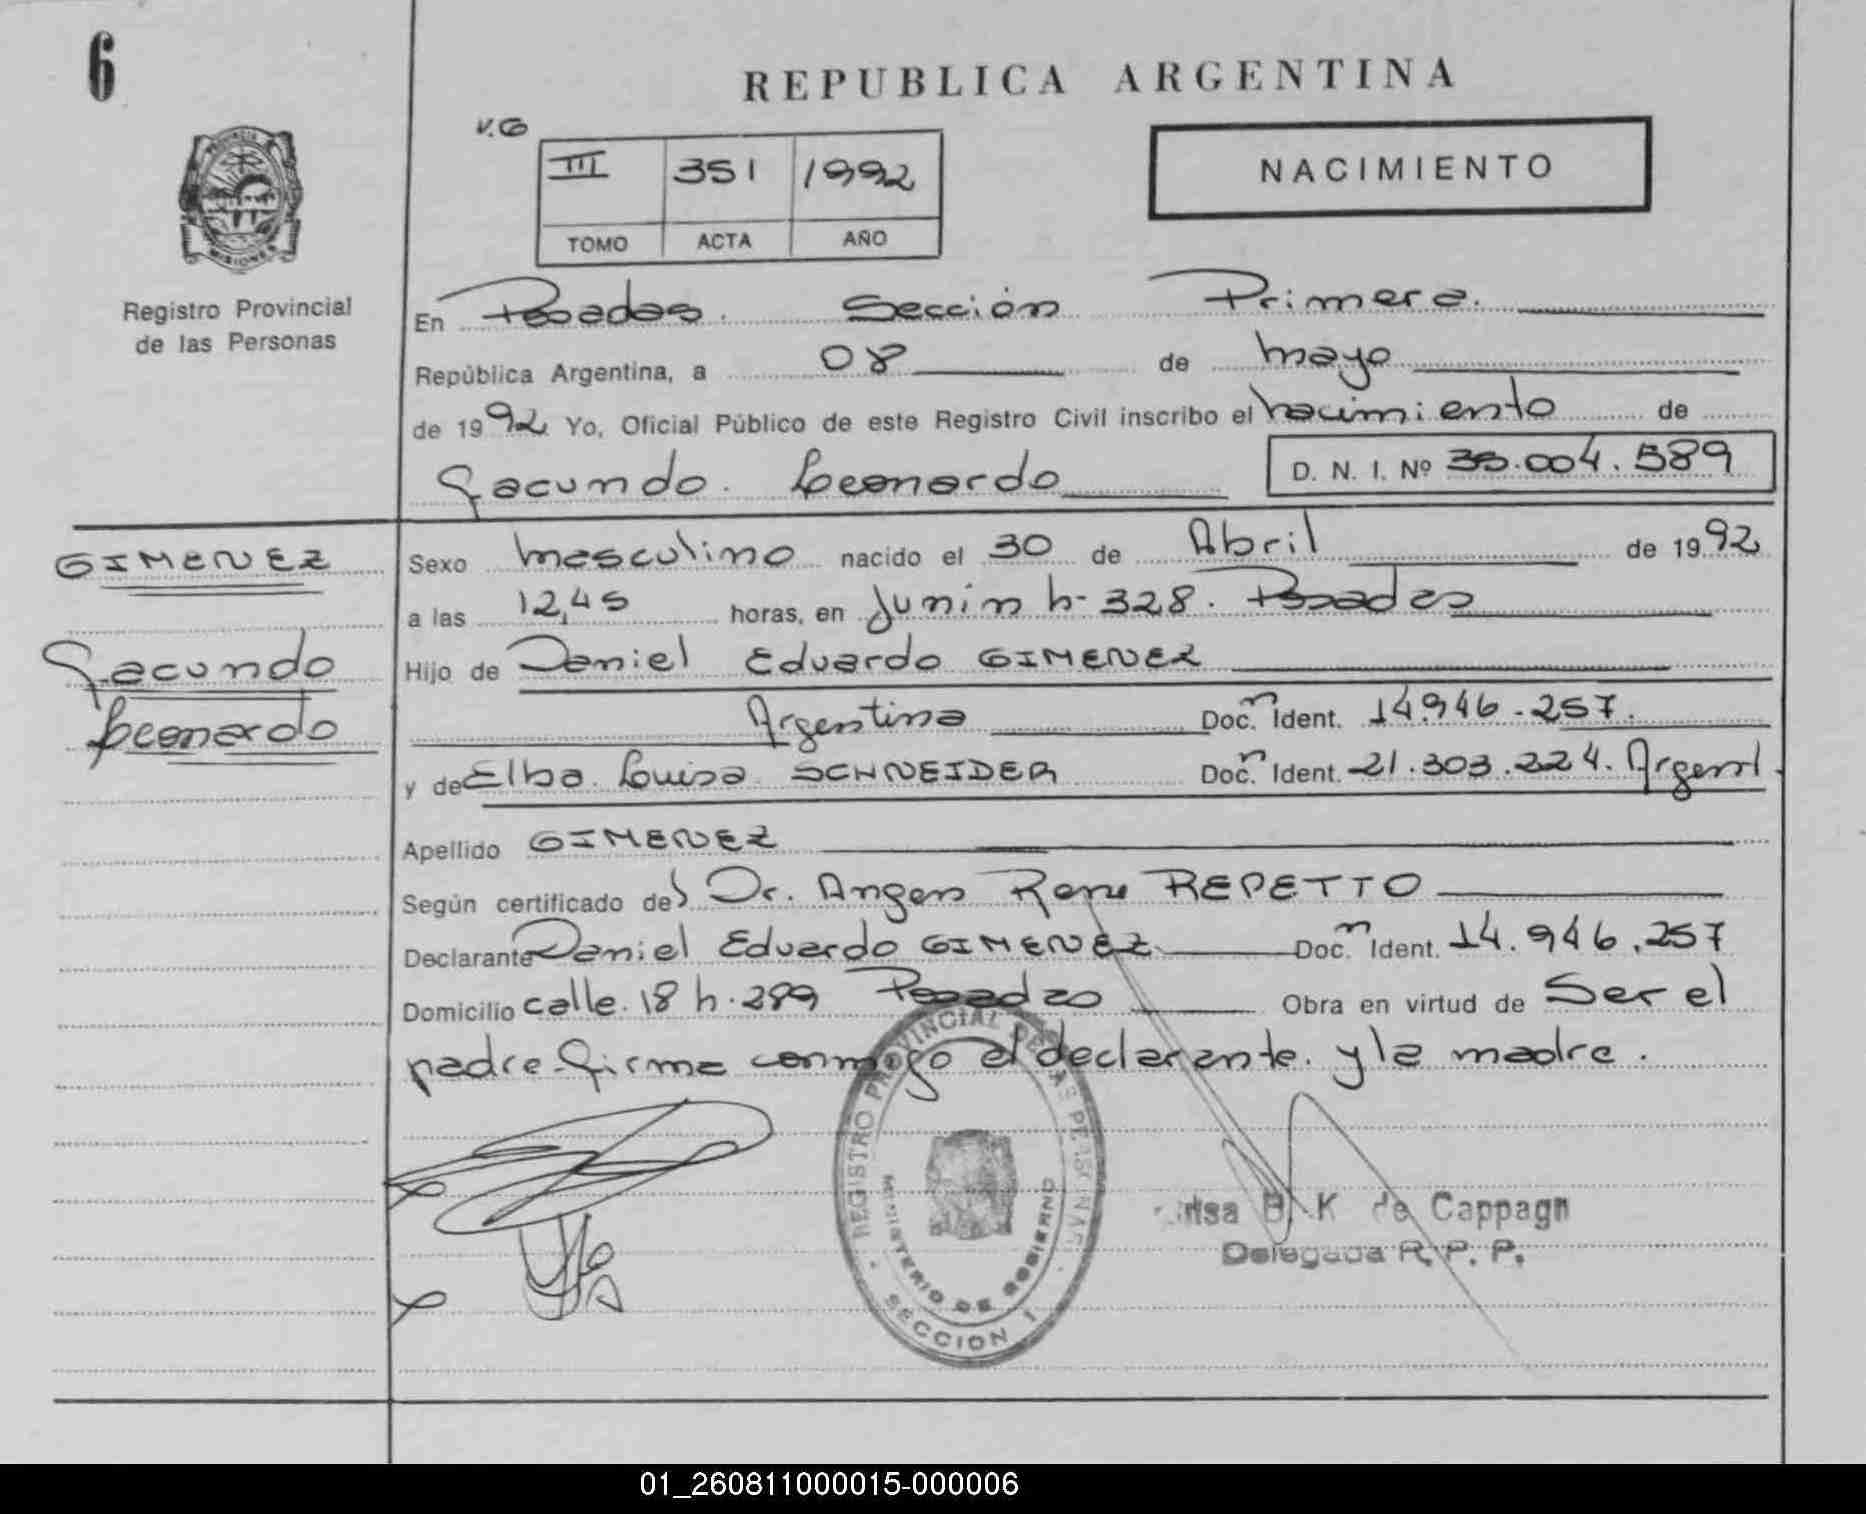 6
REPUBLICA ARGENTINA
V.G
III 351 1992
TOMO ACTA AÑO
NACIMIENTO
PROVINCIA
MISIONES
Registro Provincial
de las Personas
En Posadas. Sección Primera.
República Argentina, a 08 de mayo
de 1992 Yo, Oficial Público de este Registro Civil inscribo el nacimiento de
Facundo. Leonardo D. N. I. Nº 35.004.589
GIMENEZ
Facundo
Leonardo
Sexo masculino nacido el 30 de Abril de 1992
a las 12,45 horas, en Junin h- 328. Posadas
Hijo de Daniel Eduardo GIMENEZ
Argentina Doc. Ident. 14.946.257.
y de Elba Louisa SCHNEIDER Doc. Ident. 21.303.224. Argent.
Apellido GIMENEZ
Según certificado del Dr. Rene REPETTO
Declarante Daniel Eduardo GIMENEZ Doc. Ident. 14.946.257
Domicilio calle 18 h. 289 Posadas Obra en virtud de Ser el
padre. firma conmigo el declarante. y la madre.
REGISTRO PROVINCIAL DE LAS PERSONAS
MINISTERIO DE GOBIERNO
SECCION 1
B. K de Cappagn
Delegada R. P. P.
01_260811000015-000006